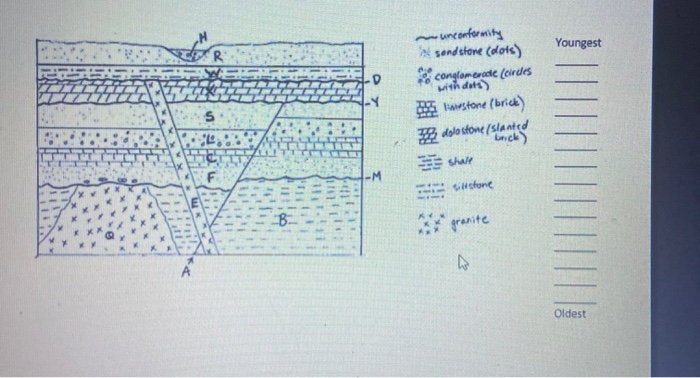 H
R
W
D
X
Y
S
L
C
F
M
E
B
Q
A
unconformity
sandstone (dots)
conglomerate (circles
with dots)
limestone (brick)
dolostone (slanted
brick)
shale
siltstone
granite
Youngest
Oldest